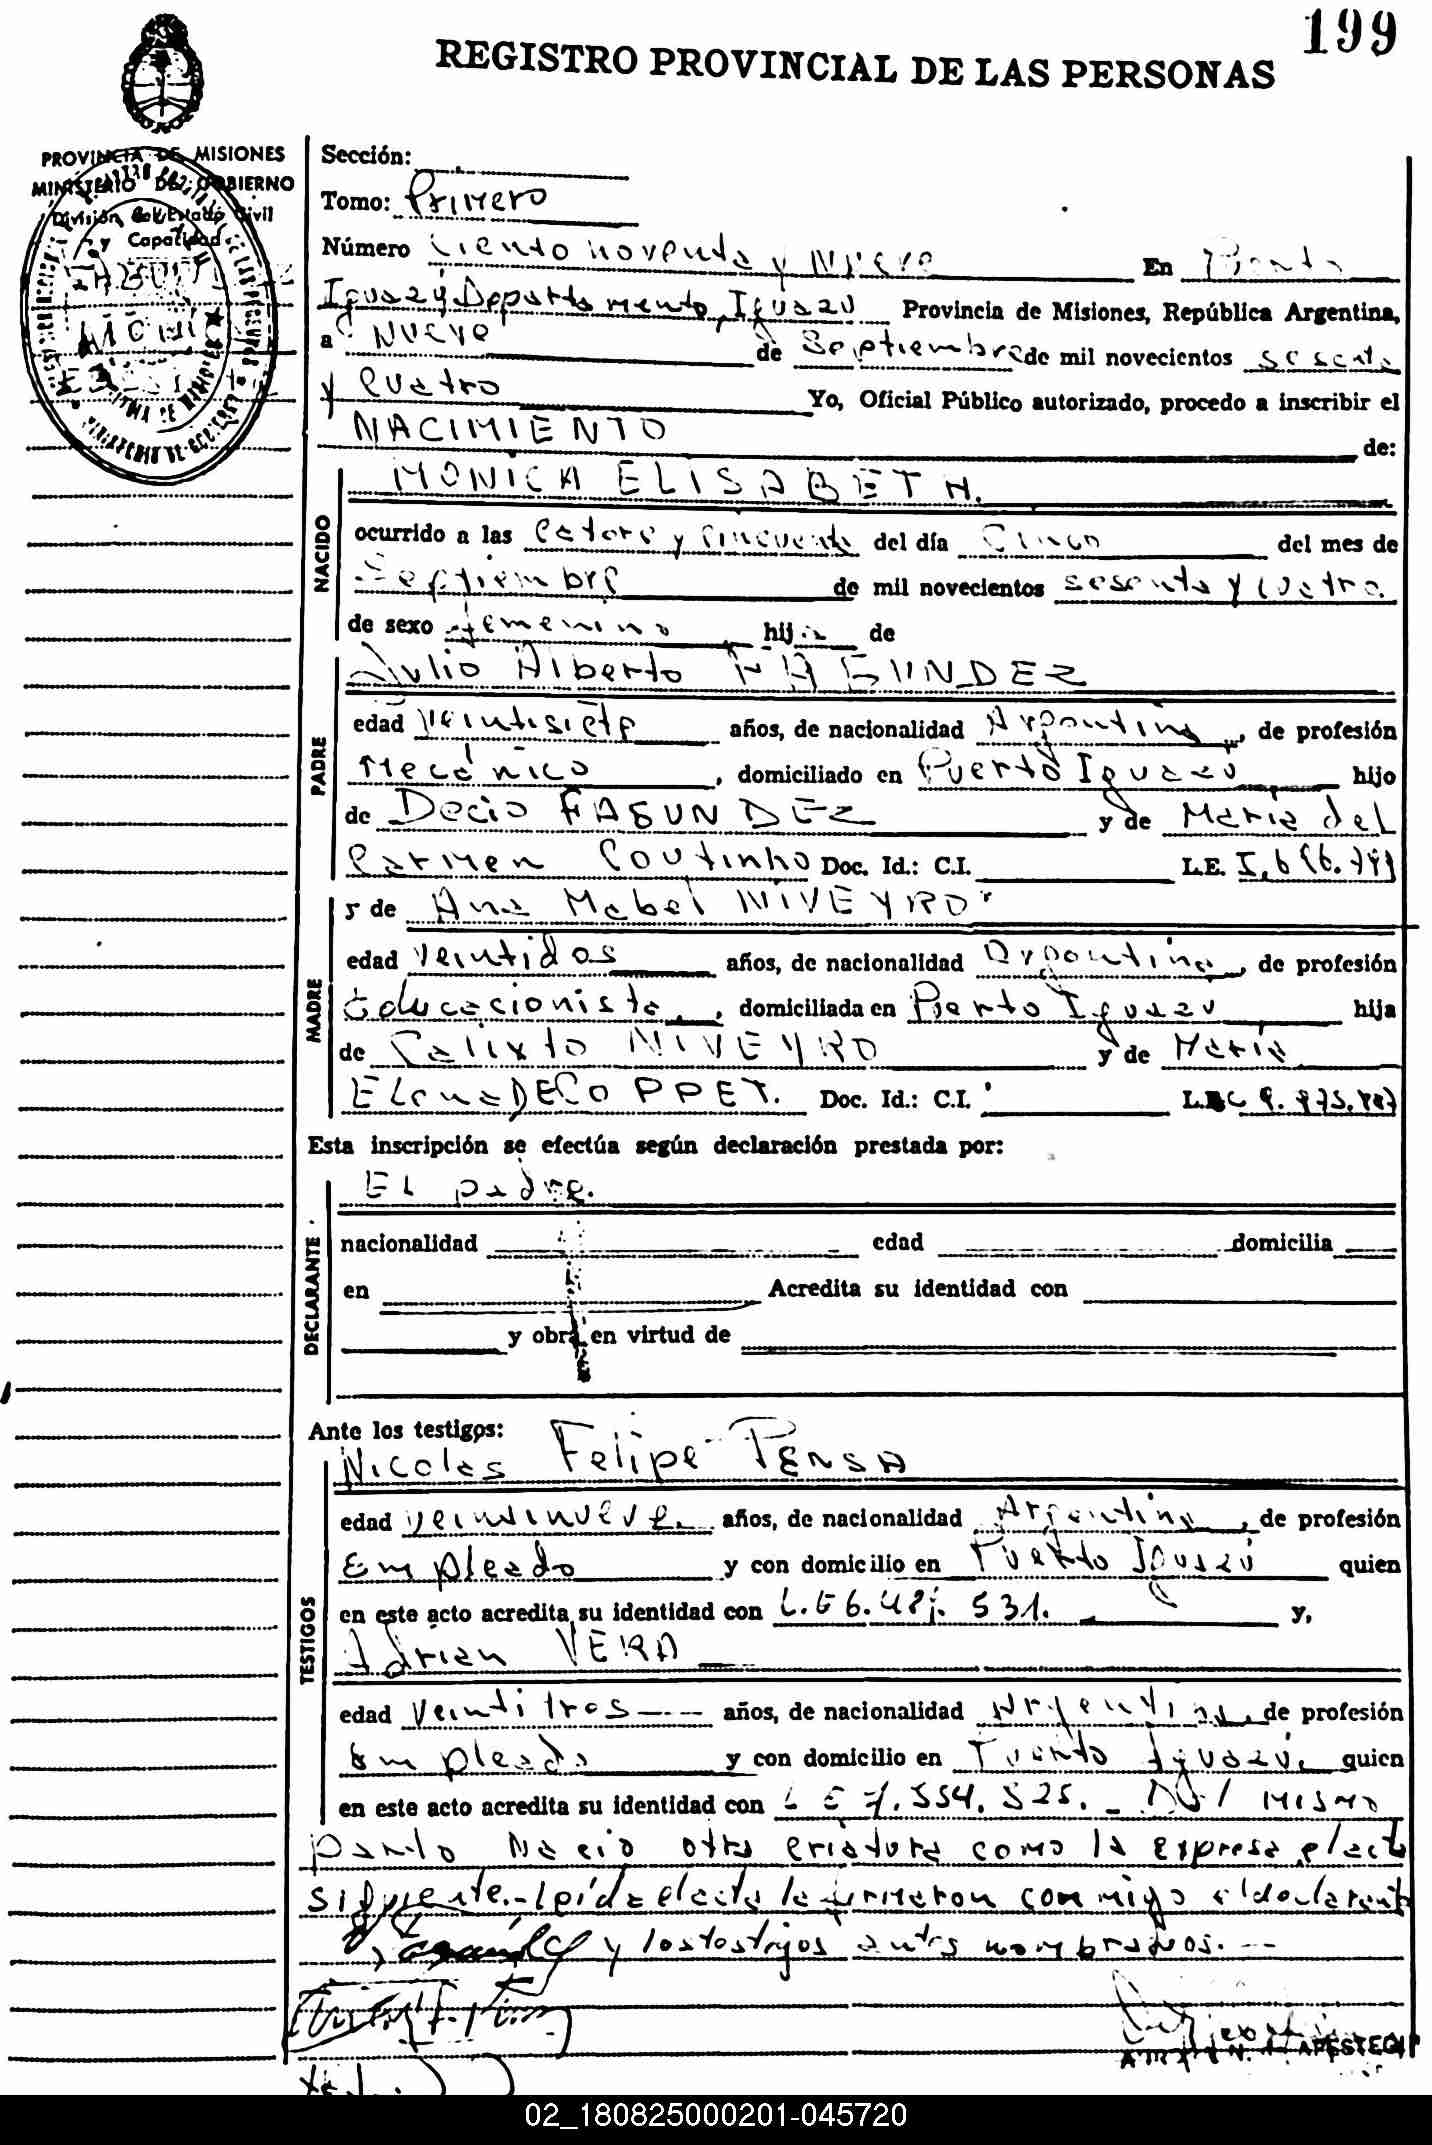 199
REGISTRO PROVINCIAL DE LAS PERSONAS
PROVINCIA DE MISIONES
MINISTERIO DE GOBIERNO
División del Estado Civil
y Capacidad
Sección:
Tomo: Primero
Número Ciento noventa y Nueve En Puerto
Iguazú Departamento, Iguazú Provincia de Misiones, República Argentina,
a Nueve de Septiembre de mil novecientos sesenta
y Cuatro Yo, Oficial Público autorizado, procedo a inscribir el
NACIMIENTO de:
NACIDO
MONICA ELISABETH.
ocurrido a las Catorce y cincuenta del día Cinco del mes de
Septiembre de mil novecientos sesenta y cuatro.
de sexo femenino hija de
PADRE
Julio Alberto FAGUNDEZ
edad Veintisiete años, de nacionalidad Argentina, de profesión
Mecánico, domiciliado en Puerto Iguazu hijo
de Decio FAGUNDEZ y de María del
Carmen Coutinho Doc. Id.: C.I. L.E.
MADRE
y de Ana Mabel NIVEYRO
edad Veintidos años, de nacionalidad Argentina, de profesión
Educacionista, domiciliada en Puerto Iguazu hija
de Calixto NIVEYRO y de María
Elena DECOPPET. Doc. Id.: C.I.
Esta inscripción se efectúa según declaración prestada por:
DECLARANTE
El padre.
nacionalidad edad domicilia
en Acredita su identidad con
y obra en virtud de
Ante los testigos:
TESTIGOS
Nicolas Felipe PENSA
edad veintinueve. años, de nacionalidad Argentina, de profesión
Empleado y con domicilio en Puerto Iguazú quien
en este acto acredita su identidad con L.E 6. 531. y,
Adrian VERA
edad Veintitres años, de nacionalidad Argentina, de profesión
Empleado y con domicilio en Puerto Iguazú, quien
en este acto acredita su identidad con L E 7.554.525. Del mismo
parto Nacio otra criatura como la expresa el acta
siguiente.- Leída el acta la firmaron conmigo el declarante
y los testigos antes nombrados.
02_180825000201-045720